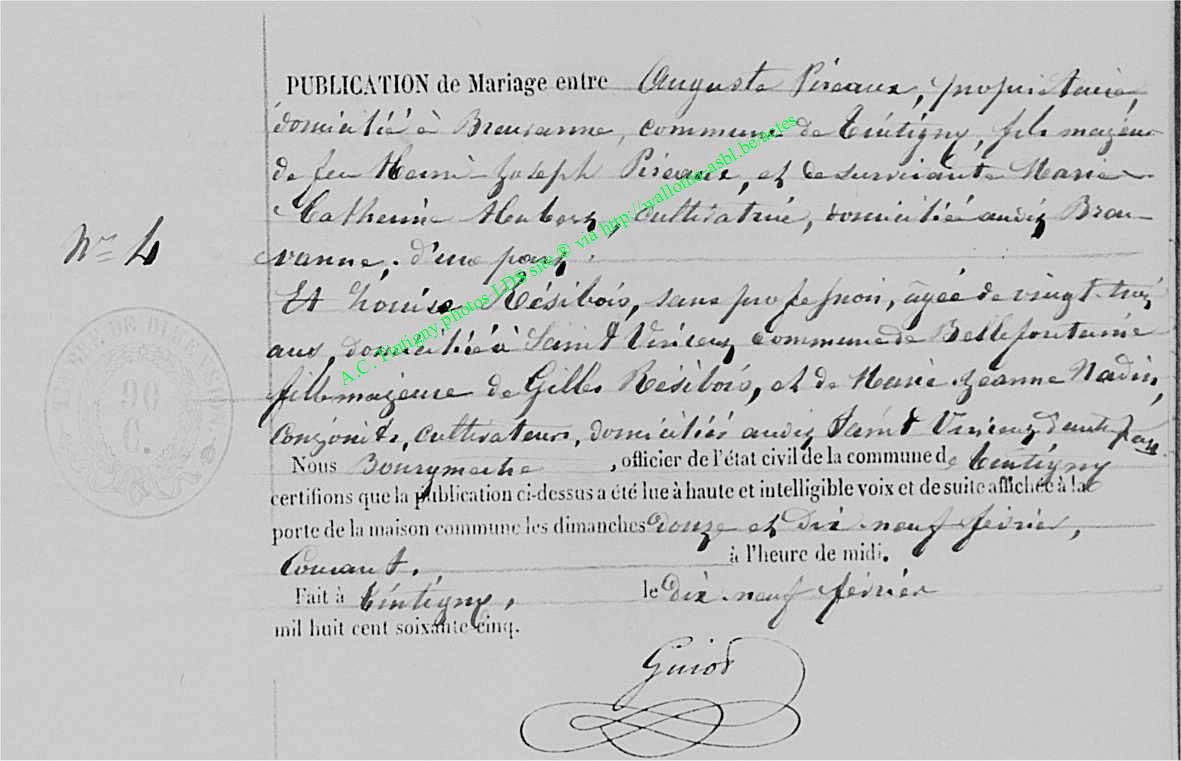 PUBLICATION de Mariage entre Auguste Piseaux, propriétaire,
domicilié à Breuvanne, commune de Tintigny, fils majeur
de feu Henri Joseph Piseaux, et de survivante Marie
Catherine Hubert, cultivatrice, domiciliée audit Breu-
vanne, d'une part.
N° 4
Et Louise Résibois, sans profession, âgée de vingt-trois
ans, domiciliée à Saint Vincent commune de Bellefontaine
fille majeure de Gilles Résibois, et de Marie Jeanne Nadin,
conjoints, cultivateurs, domiciliés audit Saint Vincent d'autre part.
Nous , officier de l'état civil de la commune de Tintigny
certifions que la publication ci-dessus a été lue à haute et intelligible voix et de suite affichée à la
porte de la maison commune les dimanches douze et dix-neuf février,
Courant. à l'heure de midi.
Fait à Tintigny, le Dix-neuf février
mil huit cent soixante cinq.
Guiot
TIMBRE DE DIMENSION
90
C.
A.C. Tintigny photos LDS site® via http://wallonia-asbl.be/actes